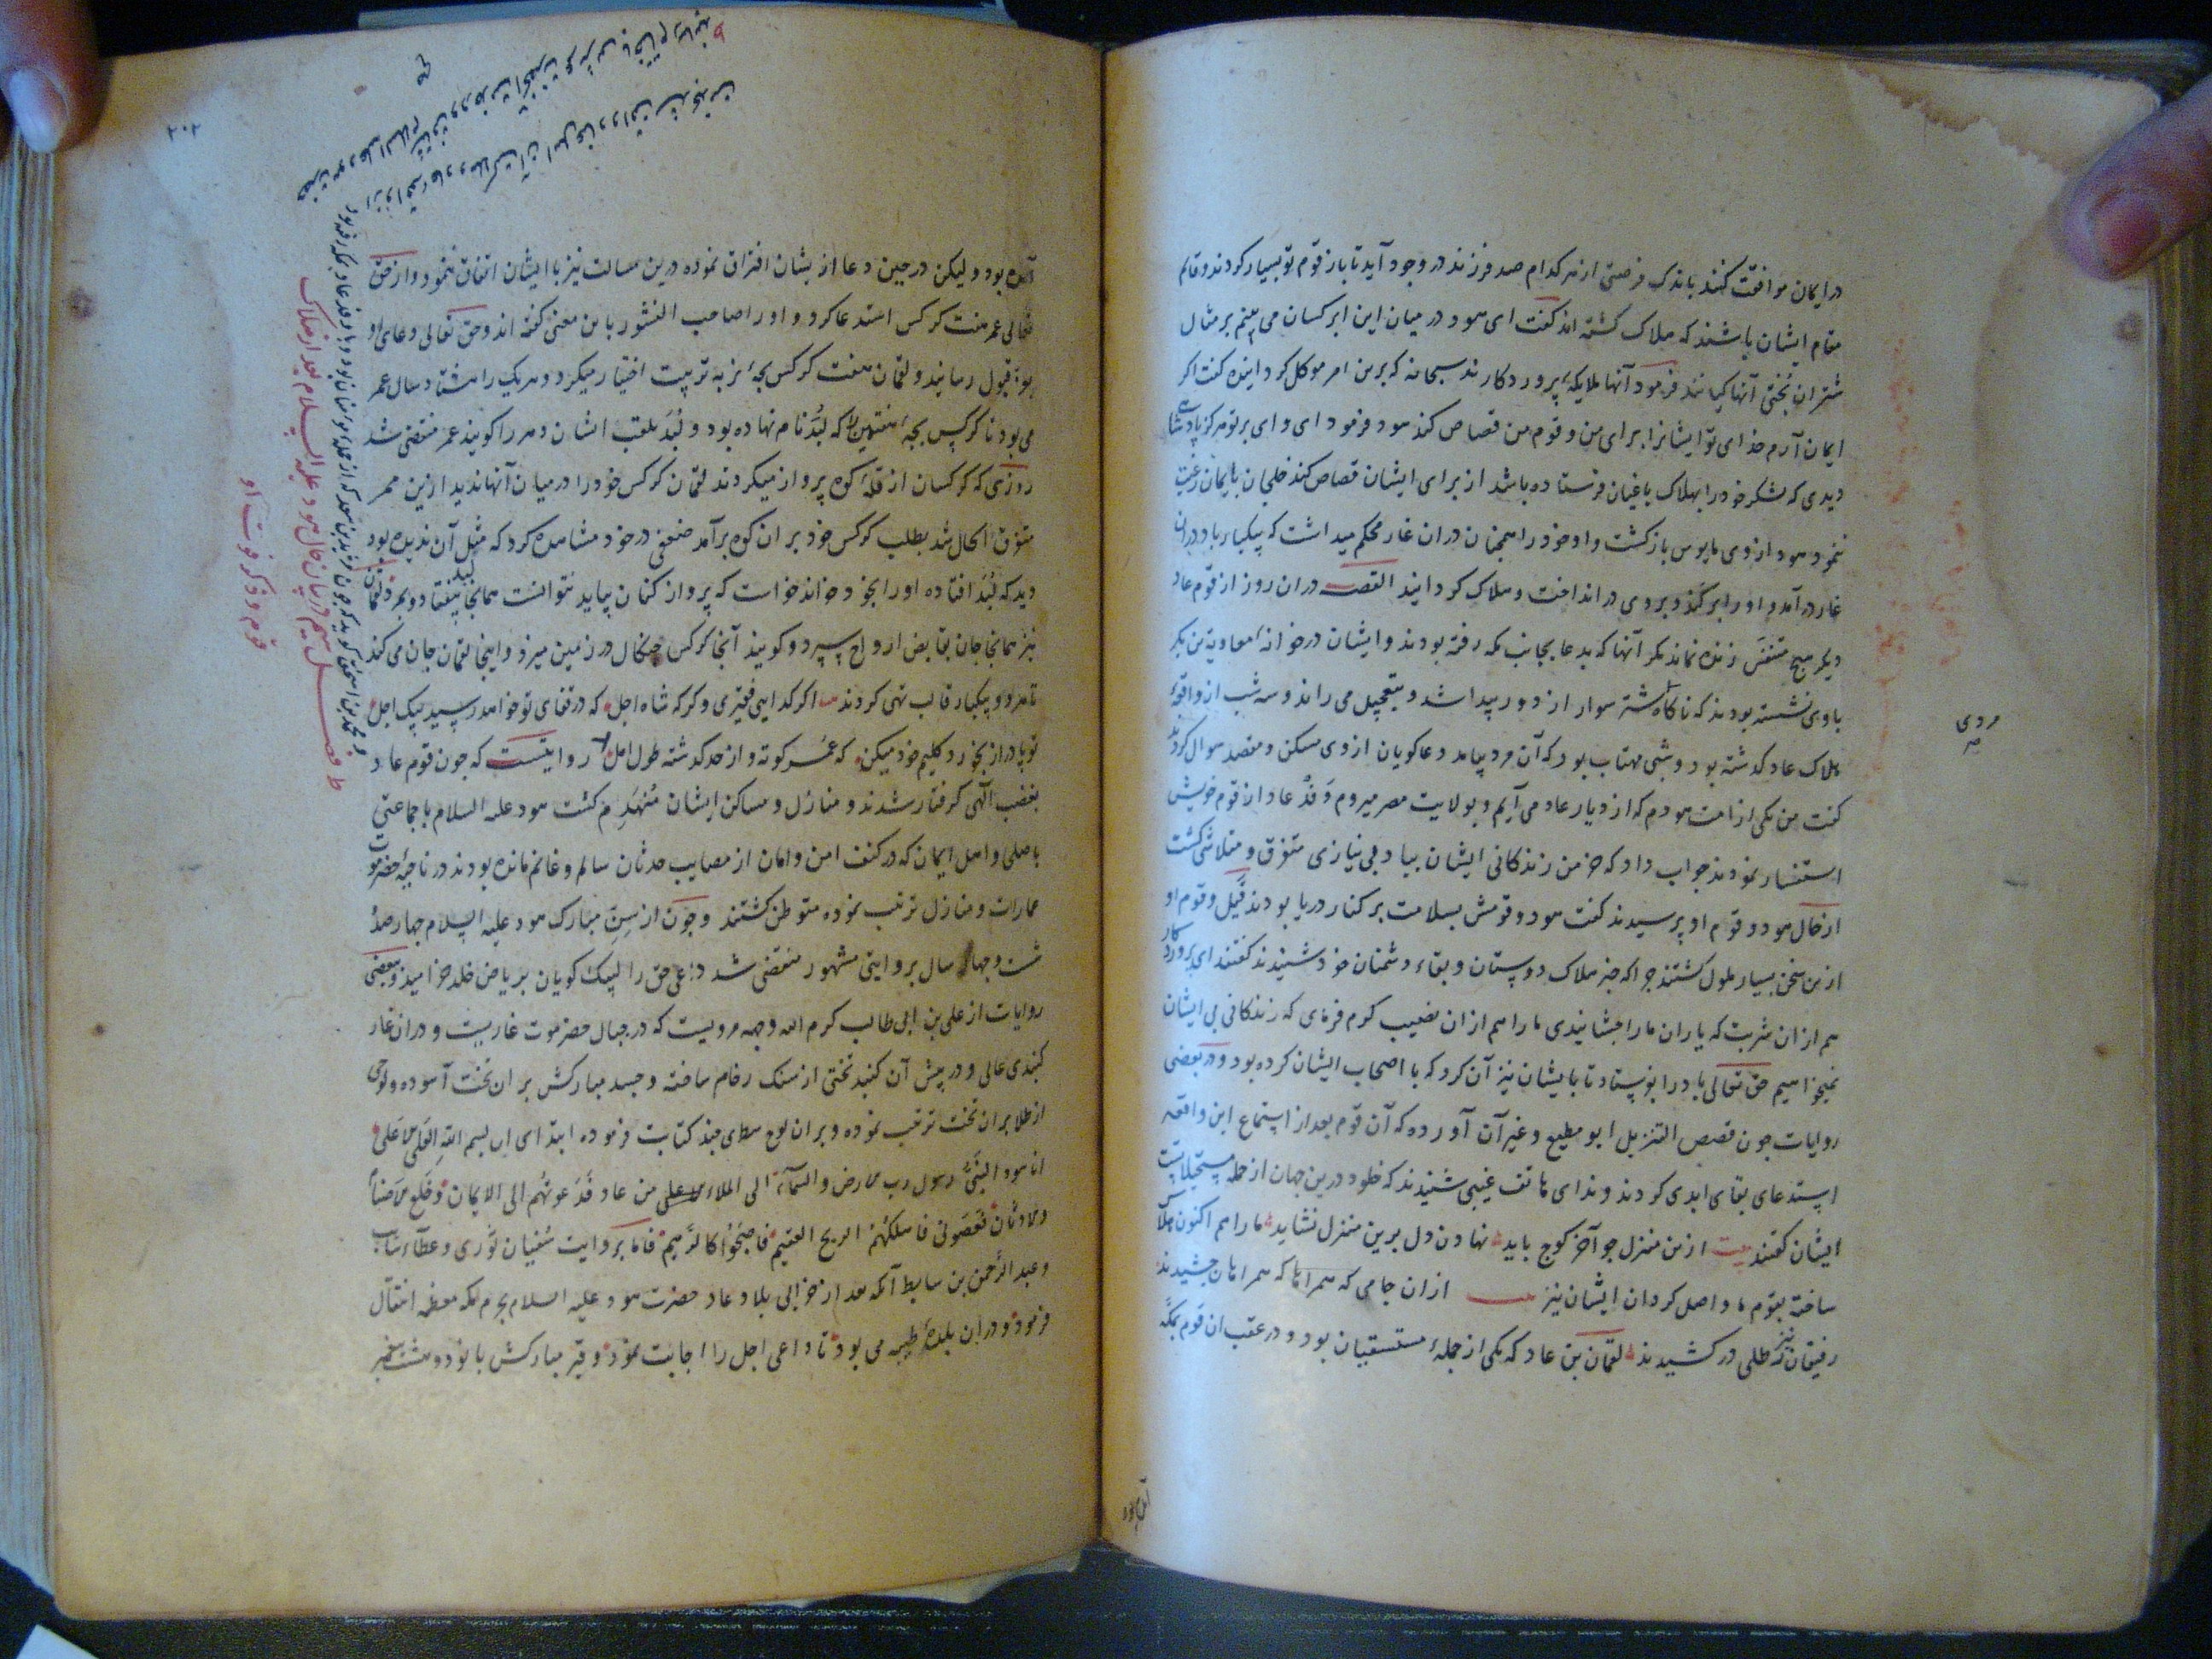 در ایمان موافقت کنند باندک فرصتی از هر کدام صد فرزند در وجود آید تا باز قوم تو بسیار کردند و قایم
مقام ایشان باشند که هلاک کشته اند کفت ای هود در میان این ابر کسان می بینم بر مثال
شتران بُختی آنها کیانند فرمود آنها ملایکهٔ پروردکارند سبحانه که برین امر موکل کرد اینده کفت اکر
ایمان آرم خدای تو ایشانرا برای من و قوم من قصاص کند هود فرمود ای وای بر تو هرکز پادشاهی
دیدی که لشکر خود را بهلاک یاغیان فرستاده باشد از برای ایشان قصاص کند خلجان بایمان رغبت
ننمود هود از وی مایوس باز کشت و او خود را همچنان دران غار محکم میداشت که بیکبار باد دران
غار در آمد و او را بر کند و بروی در انداخت و هلاک کردانید القصه دران روز از قوم عاد
دیکر هیچ متنفس زنده نماند مکر آنها که بدعا بجانب مکه رفته بودند و ایشان در خانهٔ معاویة بن بکر
با وی نشسته بودند که ناکاه شتر سوار از دور پیدا شد و بتعجیل می راند و سه شب از واقعهٔ
هلاک عاد کذشته بود و شبی مهتاب بود که آن مرد بیامد دعا کویان از وی مسکن و مقصد سوال کردند
کفت من یکی از امت هودم که از دیار عاد می آیم و بولایت مصر میروم وَفد عاد از قوم خویش
استفسار نمودند جواب داد که خرمن زندکانی ایشان بباد بی نیازی متفرق و متلاشی کشت
از حال هود و قوم او پرسیدند کفت هود و قومش بسلامت بر کنار دریا بودند قَیل و قوم او
ازین سخن بسیار ملول کشتند چرا که خبر هلاک دوستان و بقاء دشمنان خود شنیدند کفتند ای پروردکار
هم ازان شربت که یاران ما را چشانیدی ما را هم ازان نصیب کرم فرمای که زندکانی بی ایشان
نمیخواهیم حق تعالی باد را بفرستاد تا با یشان نیز آن کرد که با اصحاب ایشان کرده بود و در بعضی
روایات چون قصص التنزیل ابو مطیع و غیر آن آورده که آن قوم بعد از استماع این واقعه
استدعای بقای ابدی کردند و ندای هاتف غیبی شنیدند که خلود درین جهان از جمله مستحیلاتست
ایشان کفتند بیت ازین منزل چو آخر کوچ باید نهادن دل برین منزل نشاید ما را هم اکنون هلاک
ساخته بقوم ما واصل کردان ایشان نیز ازان جامی که همراهان چشیدند
رفیقان نیز رطلی در کشیدند لقمان بن عاد که یکی از جملهٔ مستسقیان بود و در عقب ان قوم بمکه
مردی
صح
آمده بود
۲۰۲
آمده بود و لیکن در حین دعا از یشان افتراق نموده درین مسالت نیز با ایشان اتفاق ننمود و از حق
تعالی عمر هفت کرکس استدعا کرد و او را صاحب النسور باین معنی کفته اند و حق تعالی دعای او
قبول رسانید و لقمان هفت کرکس بچهٔ نر به تربیت اختیار میکرد و هر یک را هشتاد سال عمر
می بود تا کرکس بچهٔ هفتمین که لُبَد نام نهاده بود و لُبَد بلغت ایشان دهر را کویند عمر منقضی شد
روزی که کرکسان از قلهٔ کوه پرواز میکردند لقمان کرکس خود را در میان آنها ندید ازین ممر
متفرق الحال شد بطلب کرکس خود بران کوه بر آمد ضعفی در خود مشاهده کرد که مثل آن ندیده بود
دید که لُبَد افتاده او را بخود خواند خواست که پرواز کنان بیاید نتوانست همانجا بیفتاد و بمرد لقمان
نیز همانجا جان بقابض ارواح سپرد و کویند آنجا کرکس چنکال در زمین میزد و اینجا لقمان جان می کند
تا هر دو بیکبار قالب تهی کردند اکر کدایی فقیری و کر که شاه اجل که در قفای تو خواهد رسید پیک اجل
تو پا دراز بخود در کلیم خود میکن که عُمر کوته و از حد کذشته طول امل روایتست که چون قوم عاد
بغضب الهی کرفتار شدند و منازل و مساکن ایشان مُنهَدِم کشت هود علیه السلام با جماعتی
با صلحا و اهل ایمان که در کنف امن و امان از مصایب حدثان سالم و غانم مانده بودند در ناحیهٔ حضرموت
عمارات و منازل ترتیب نموده متوطن کشتند و چون از سِنِّ مبارک هود علیه السلام چهارصد
شصت و چهار سال بروایتی مشهور منقضی شد داعی حق را لبیک کویان بریاض خلد خرامید و بعضی
روایات از علی بن ابی طالب کرم الله وجهه مرویست که در جبال حضرموت غاریست و دران غار
کنبدی عالی و در پیش آن کنبد تختی از سنک رخام ساخته و جسد مبارکش بران تخت آسوده و لوحی
از طلا بران تخت ترتیب نموده و بران لوح سطری چند کتابت فرموده ابتدای آن بسم الله العلی الاعلی
انا هود النبیّ رسول رب الارض و السمآء الی الملاء من عاد فدعوتهم الی الایمان و خلع الاصنام
والاوثان فعصونی فاهلکهم الریح العقیم فاصبحوا کالرمیم فاما بروایت سُفیان ثوری و عطاء بن سایب
و عبد الرّحمن بن سابط آنکه بعد از خرابی بلاد عاد حضرت هود علیه السلام بحرم مکه معظمه انتقال
فرمود و دران بلدهٔ طیبه می بود تا داعی اجل را اجابت نمود و قبر مبارکش با نود و هشت پیغمبر
فصل سیم در بیان حال هود علیه السلام بعد از هلاک
قوم و ذکر فوت او